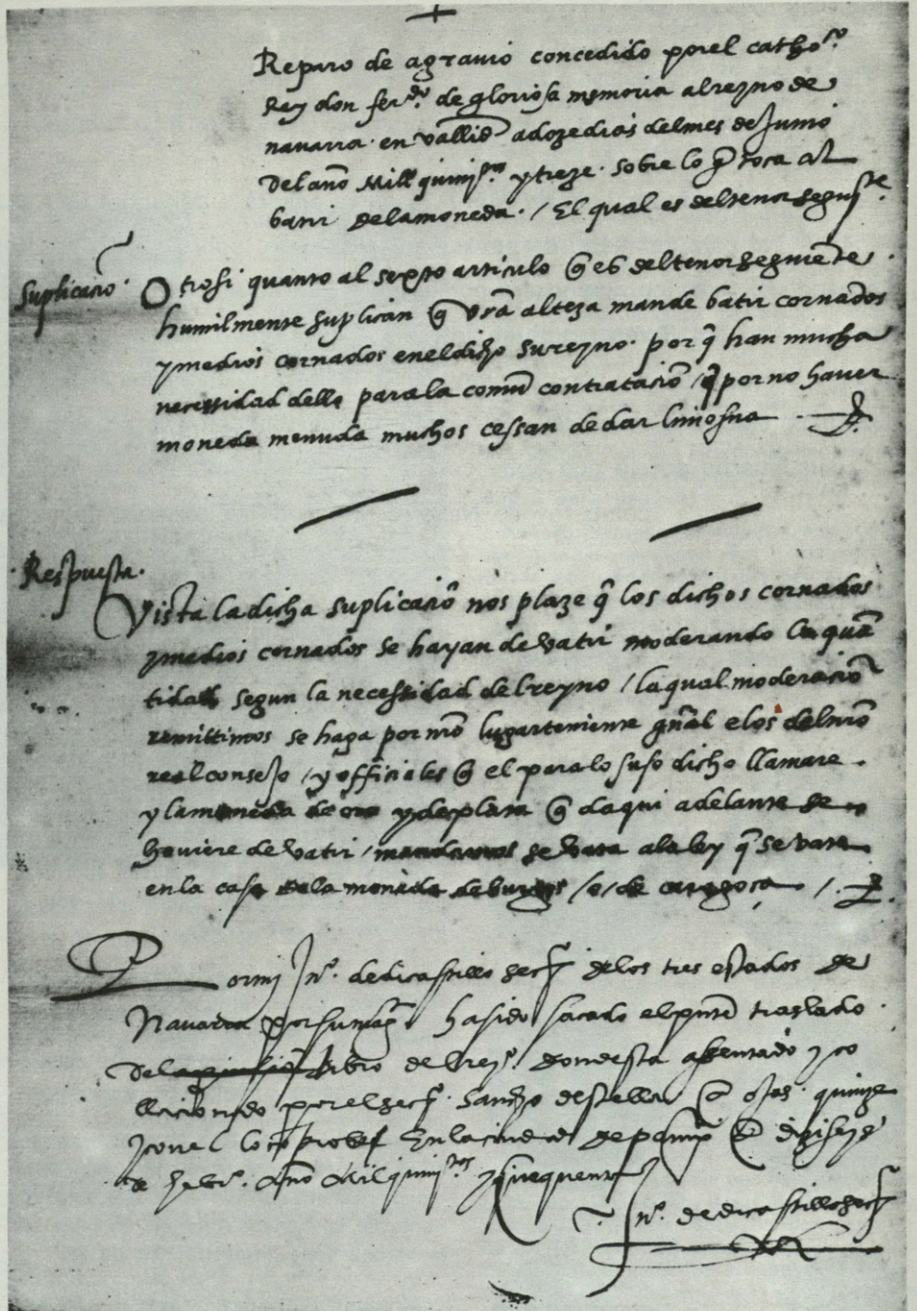 Reparo de agravio concedido por el catho.co
Rey don fer.do de gloriosa memoria al reyno de
navarra. en vallid adoze dias del mes de Junio
Del año Mill quini.os y treze. sobre lo q̃ toca al
batir de la moneda. / El qual es del tenor seguj.te
Suplicacio͂.
Otrosi quanto al sexto articulo q̃ es del tenor seguie͂te.
humilmente suplican q̃ v͂ra alteza mande batir cornados
y medios cornados en el dicho su reyno. por q̃ han mucha
necessidad dello para la comu͂ contratacio͂ / q̃ por no haver
moneda menuda muchos cessan de dar limosna
Respuesta.
Vista la dicha suplicacio͂ nos plaze q̃ los dichos cornados
y medios cornados se hayan de vatir moderando la qua͂
tidad segun la necessidad del reyno / la qual moderacio͂
remittimos se haga por n͂ro lugarteniente gn͂al e los del n͂ro
real consejo / y officiales q̃ el para lo suso dicho llamare.
y la moneda de oro y de plata q̃ daqui adelante se
hoviere de vatir / mandamos se vata a la ley q̃ se vate
en la casa de la moneda de burgos / o / de caragoça /.
Por mj Jn.o de dicastillo secr. de los tres estados de
Navarra por su mag. ha sido sacado el pn͂te traslado
Del libro del rey.o donde esta assentado y co
llacionado por el secr. Sancho destella a ojas quinze
En la ciudad de pamp.
de hebr.o Año Mil quini.tos y cinquenta
Jn.o de dicastillo secr.